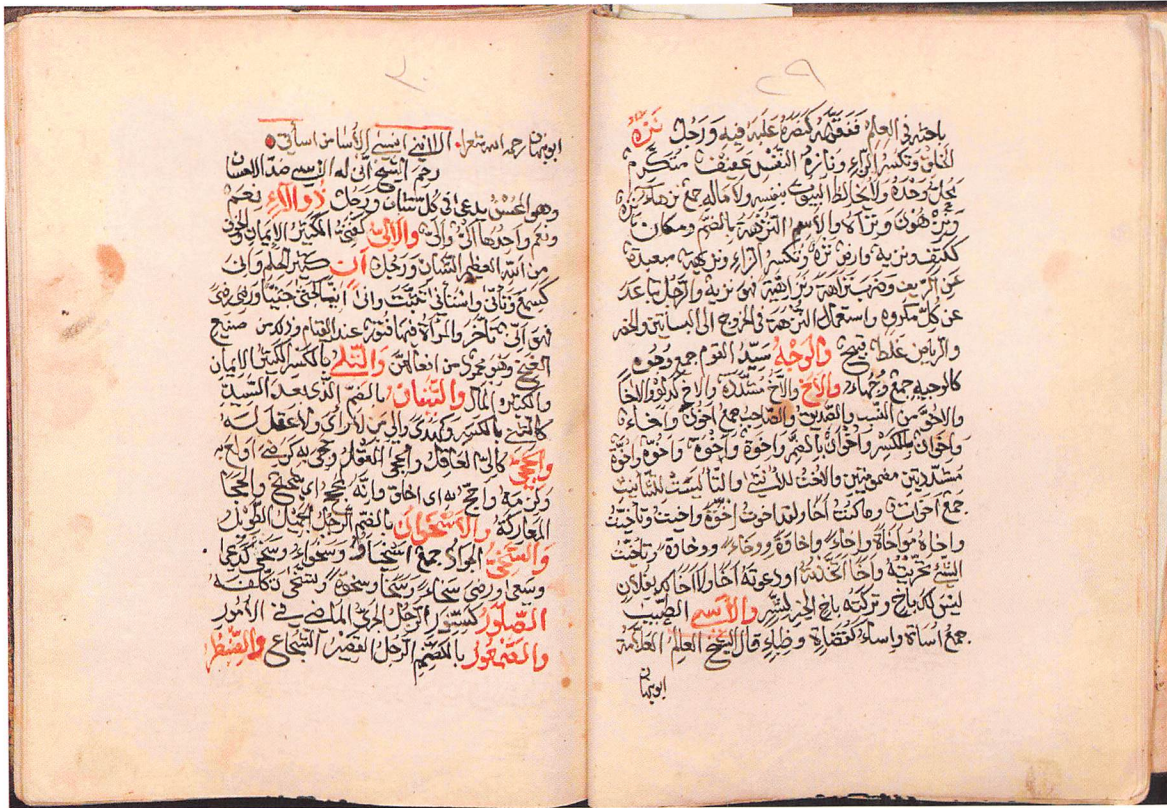 ٢٩
باحثه في العلم ففقهه كنصره غلبه فيه ورجل نزه
الخلق وتكسر الزاء ونازه النفس عفيف متكرم
يحل وحده ولا يخالط البيوت بنفسه ولا ماله جمع نزهاء
ونزهون ونزاه والاسم النزهة بالضم ومكان نزه
ككتف ونزيه وارض نزهة وتكسر الزاء ونزيهة بعيدة
عن الريف وضرب نزاهة ونزاهية فهو نزيه والرجل تباعد
عن كل مكروه واستعمال النزهة في الخروج الى البساتين والخضر
والرياض غلط قبيح والوجه سيد القوم جمع وجوه
كالوجيه جمع وجهاء والاخ والاخ مشددة والاخو كدلو والاخا
والاخو من النسب والصديق والصاحب جمع اخون واخاء
واخوان بالكسر واخوان بالضم واخوة واخوة واخوة واخو
مشددتين مضمومتين والاخت للانثى والتا ليست للتانيث
جمع اخوات وما كنت اخا ولقد اخوت اخوة واخيت وتاخيت
واخاه مواخاة واخاء واخاوة ووخاء ووخاوة وتاخيت
الشئ تحريته واخا اتخذته او دعوته اخا ولا اخا لك بفلان
ليس لك باخ وتركته باخ الخير بشر والاسي الطبيب
جمع اساة واساء كقضاة وظباء قال الشيخ العالم العلامة
ابو نبهان
٣٠
ابو نبهان رحمه الله شعرا. الا انني انسي الا لأسا من اسأتي
رحم الشيخ انى له الانسي ضد الاحسان
وهو المحسن يدعى في كل شان ورجل ذو الآء نعم
ونعم واحدها الى والى والالي كغني الكثير الايمان
من الله العظيم الشان ورجل آن كثير الحلم وانى
كسمع وتأنى واستأنى تثبت وانى انيا كجثى جثيا ورضي رضى
فهو انى تاخر والمرأة فيها فتور عند القيام وذلك من صنيع
الغنج وهو محمود من افعالهن والتلي بالكسر الكثير الايمان
والكثير المال والثنيان بالضم الذي بعد السيد
كالثنى بالكسر وكهدى والى من لا رأي ولا عقل له
والحجي كالى العاقل والحجى العقل وحجى به كرضى اولع به
ولزمه واحج به اي اخلق وانه لحجي اي شحيح والحجا
المعاركة والاسحوان بالضم الرجل الجميل الطويل
والسخي الجواد جمع اسخياء وسخواء وسخى كدعا
وسعا ورضي سخاء وسخا وسخوة وتسخى تكلفه
الصلور كسنور الرجل الجري الماضي في الامور
والعثمعور بالضم الرجل القصير الشجاع والقسطر